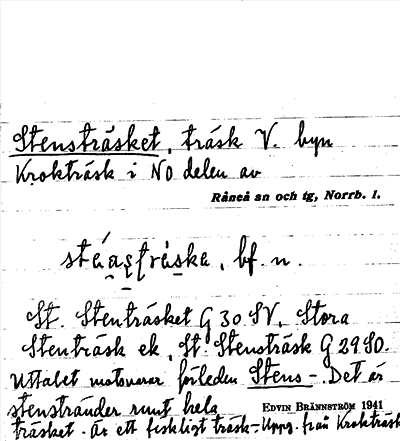 Stensträsket, träsk V. byn
Krokträsk i NO delen av
Råneå sn och tg, Norrb. l.
bf. n.
St. Stenträsket G 30 SV, Stora
Stenträsk ek, St. Stensträsk G 29 SO.
Uttalet motsvarar förleden Stens-. Det är
stenstränder runt hela
EDVIN BRÄNNSTRÖM 1941
träsket. Är ett fiskligt träsk-Upps. från Krokträsk